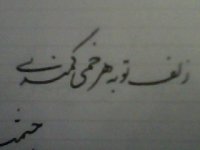 زلف تو به هر خمی کمندی
چشمت